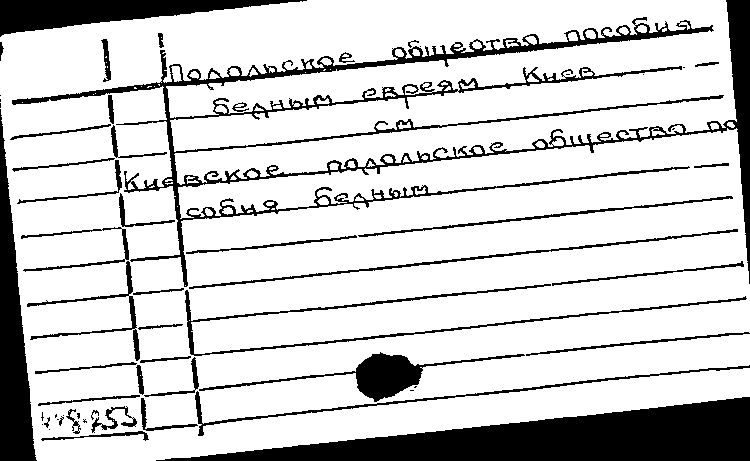 Подольское общество пособия
бедным евреям. Киев
см
Киевское подольское общество по
собия бедным.